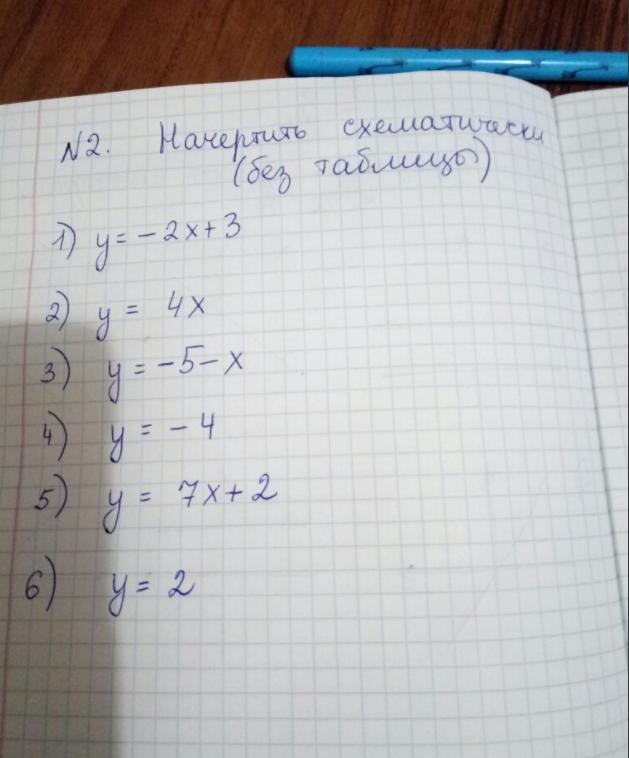 N2. Начертить схематически
(без таблицы)
1) y = -2x+3
2) y = 4x
3) y = -5-x
4) y = -4
5) y = 7x+2
6) y = 2